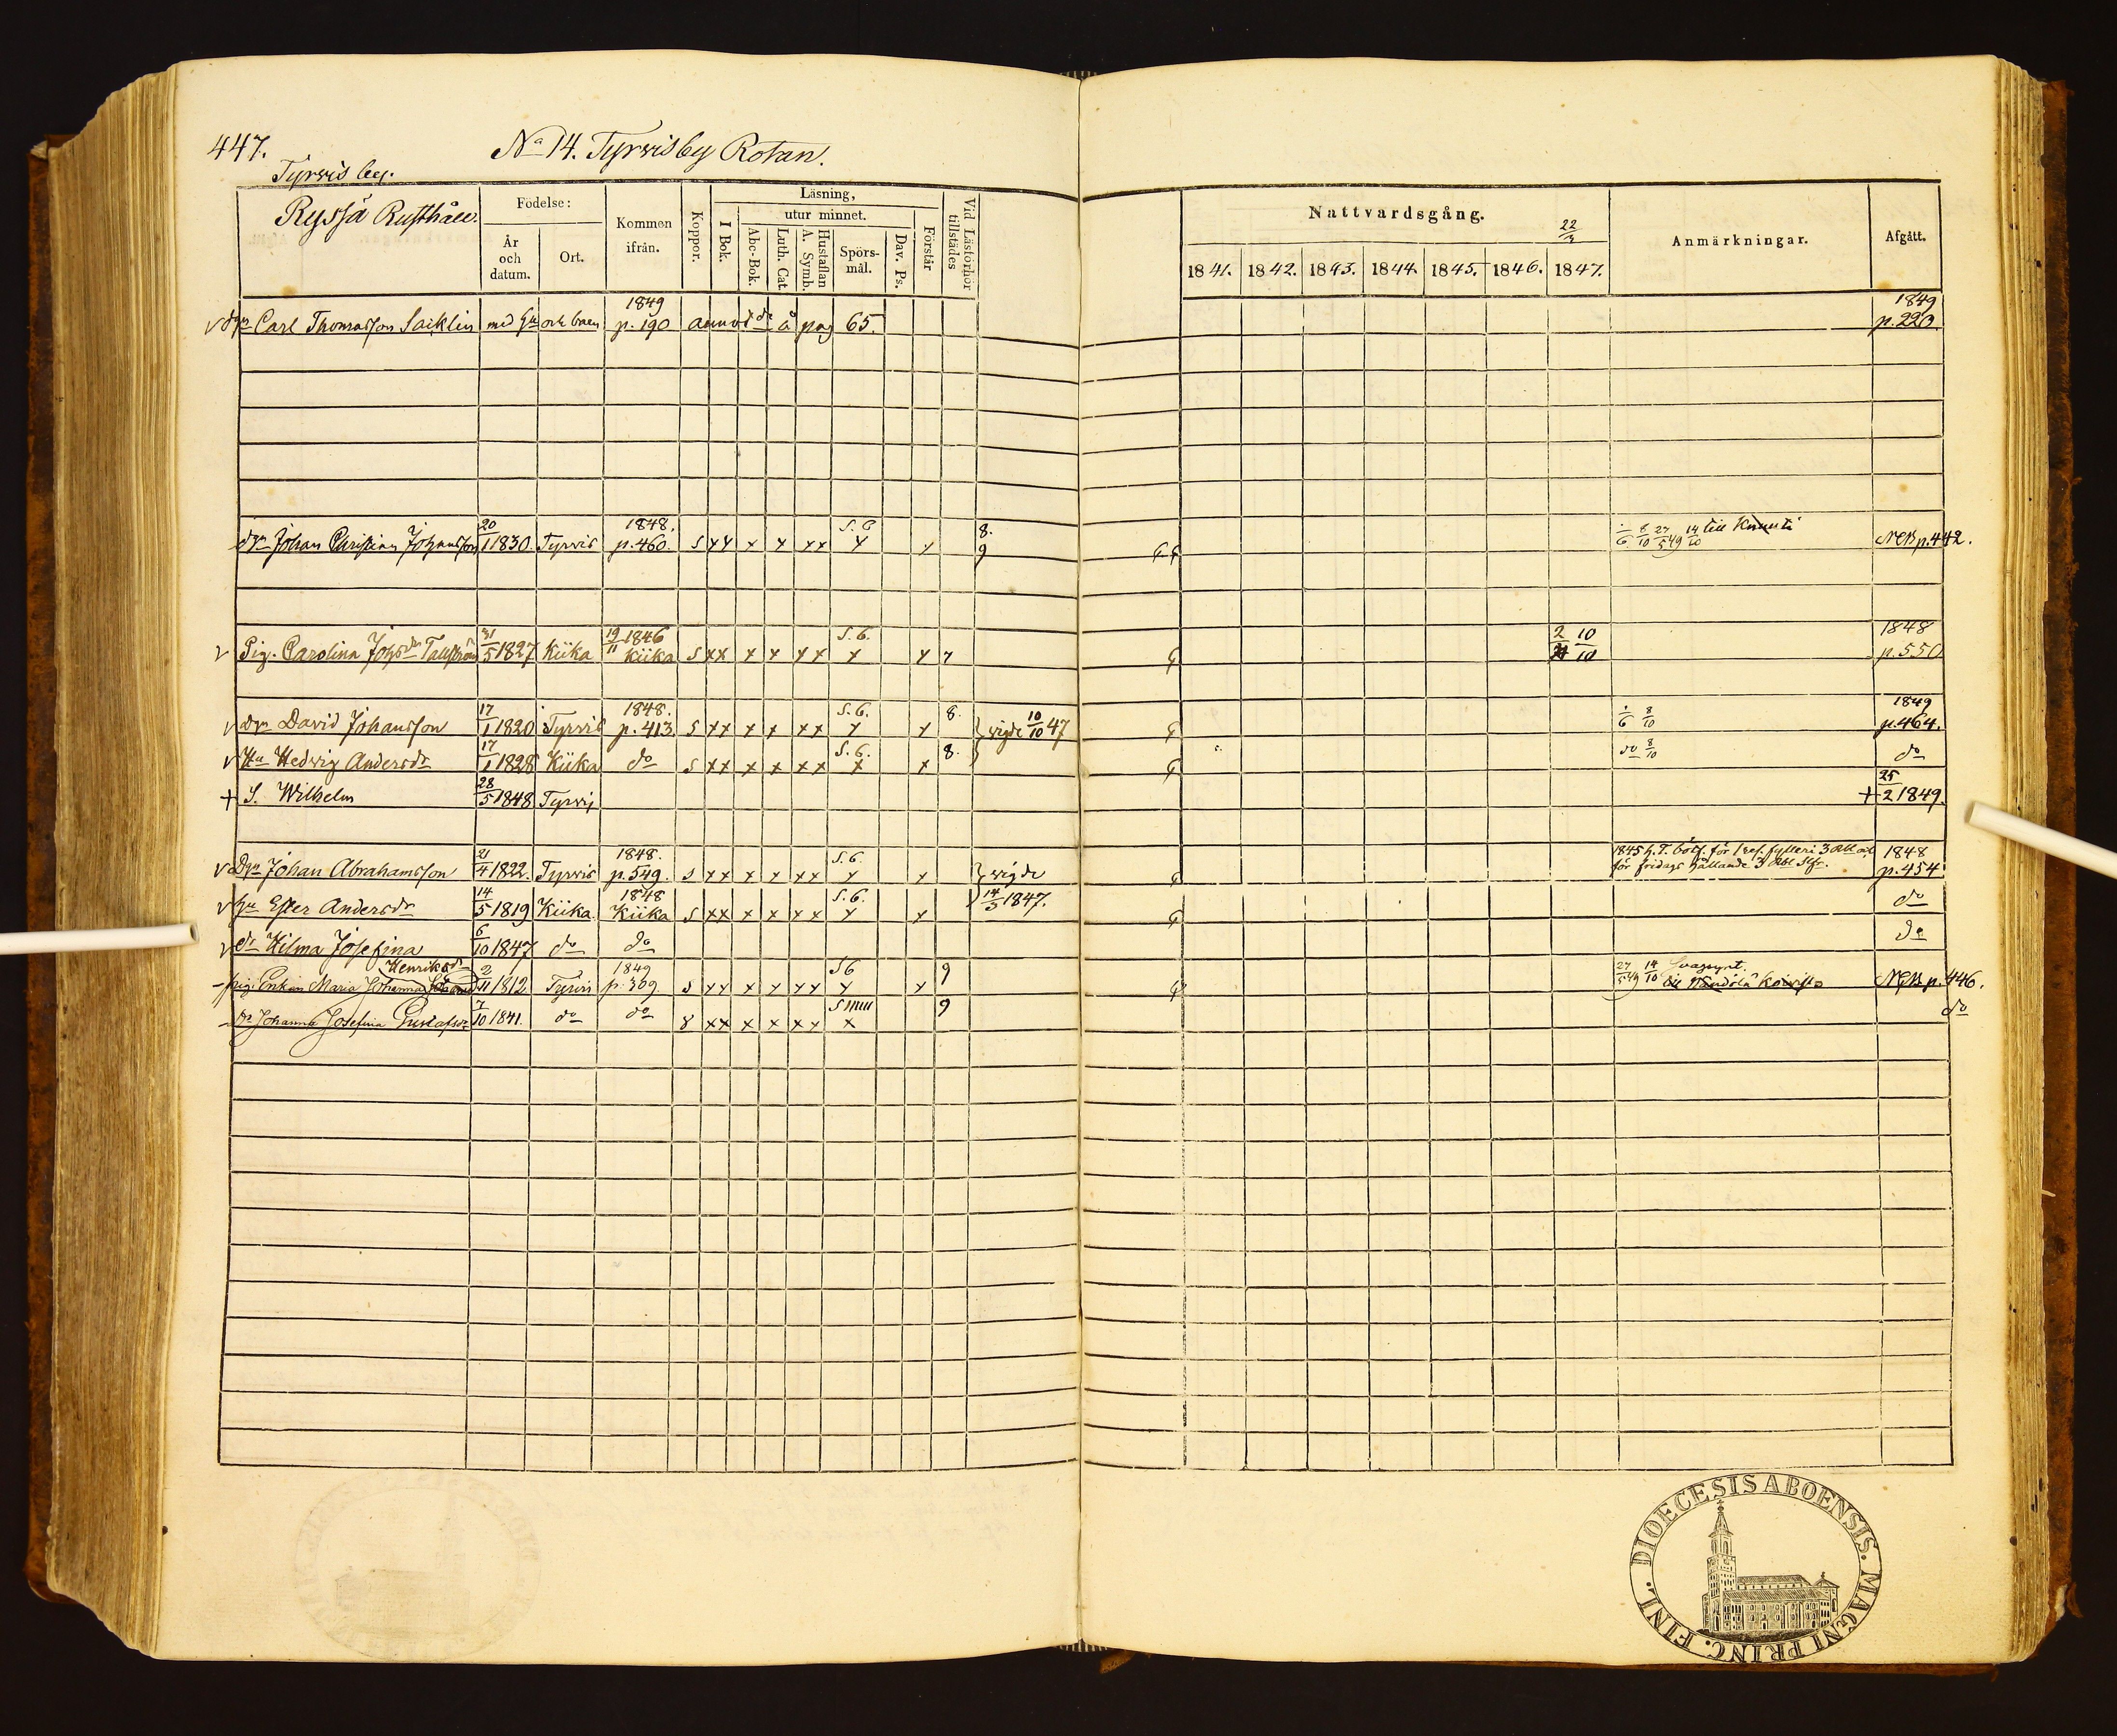 447. No 14. Tyrvis by Rotan.
Tyrvis by.
Ryssä Rusthåll.
Födelse:
År och datum.
Ort.
Kommen ifrån.
Koppor.
Läsning,
I Bok.
utur minnet.
Abc-Bok.
Luth. Cat.
Hustaflan A. Symb.
Spörsmål.
Dav. Ps.
Förstår
Vid Läsförhör tillstädes
Nattvardsgång. 22/3
1841. 1842. 1843. 1844. 1845. 1846. 1847.
Anmärkningar.
Afgått.
v dgn Carl Thomasson Saiklin med hu och barn 1849 p. 190 å pag 65. 1849 p. 223
dgn Johan Christian Johansson 20/1 1830. Tyrvis 1848. p. 460. s xx x x xx S. 6 x x 8. 9 8/10 27/5 49 14/10 till Knuuti NCB p. 442.
v Pig. Carolina Johsdr Tallström 31/5 1827 Kiika 19/11 1846 Kiika s xx x x xx S. 6. x x 7 2/10 10/10 1848 p. 550
v dgn David Johansson 17/1 1820 Tyrvis 1848. p. 413. s xx x x xx S. 6. x x 8. vigde 10/10 47 8/10 1849 p. 464.
v Hu Hedvig Andersdr 17/1 1828 Kiika do s xx x x xx S. 6. x x 8. do 8/10 do
+ S. Wilhelm 28/5 1848 Tyrvis + 25/2 1849.
v Dgn Johan Abrahamsson 21/4 1822. Tyrvis 1848. p. 549. s xx x x xx S. 6. x x vigde 1845 h. T. böt. för 1 res. fylleri 3 Rbl och för fridags hållande 3 Rbl Slfr. 1848 p. 454
v hu Ester Andersdr 14/5 1819 Kiika. 1848 Kiika s xx x x xx S. 6. x x 14/3 1847. do
v dr Hilma Josefina 6/10 1847 do do do
Henriksdr
pig. Enkan Maria Johanna 2/11 1812 Tyrvis 1849 p. 309. s xx x x xx S 6 x x 9 27/5 49 14/10 Svagsynt. Koivisto NCB p. 446.
dr Johanna Josefina Gustafsdr 7/10 1841. do do 8 xx x x xx x 9 do
DIOECESIS ABOENSIS. MAGNI PRINC. FINL.